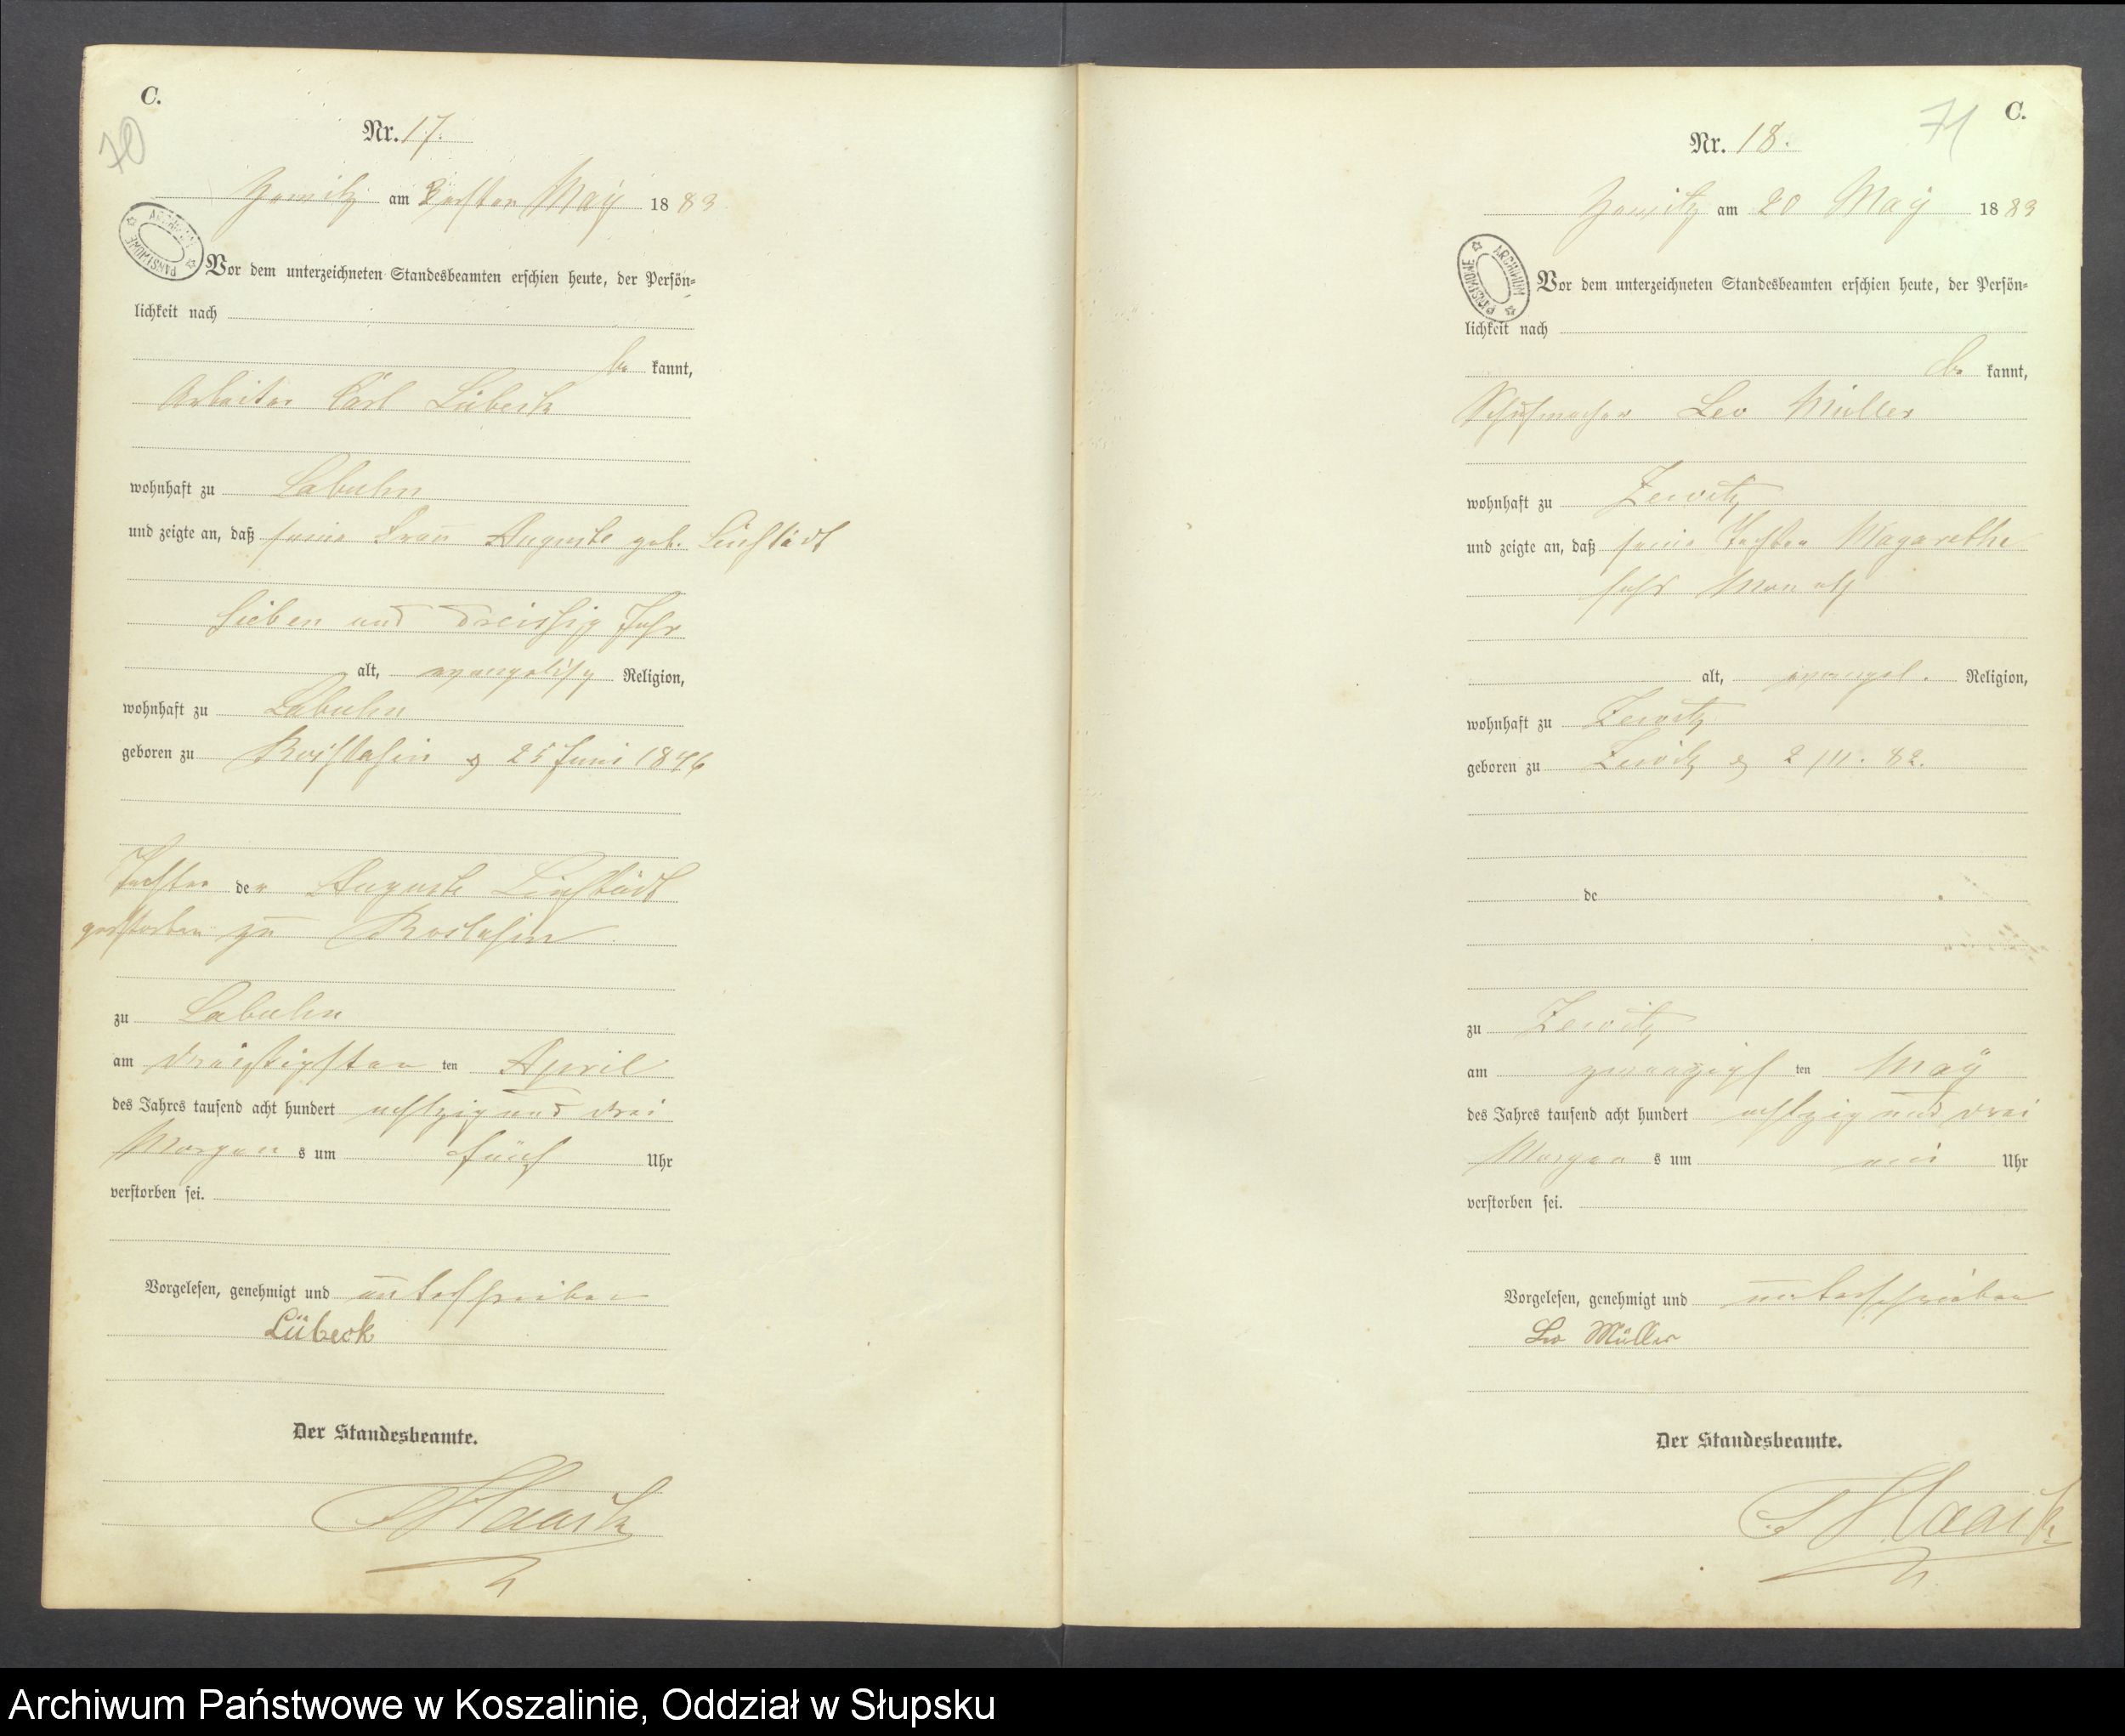 C.
70
Nr. 17.
Zewitz am Ersten May 1883
ARCHIWUM PAŃSTWOWE
Vor dem unterzeichneten Standesbeamten erschien heute, der Persön-
lichkeit nach
be kannt,
Arbeiter Carl Lübeck
wohnhaft zu Labuhn
und zeigte an, daß seine Frau Auguste geb.
sieben und dreissig Jahr
alt, evangelisch Religion,
wohnhaft zu Labuhn
geboren zu 25 Juni 1846
Tochter der Auguste
gestorben zu
zu Labuhn
am dreißigsten ten April
des Jahres tausend acht hundert achtzig und drei
Morgen s um fünf Uhr
verstorben sei.
Vorgelesen, genehmigt und unterschrieben
Lübeck
Der Standesbeamte.
C.
71
Nr. 18.
Zewitz am 20 May 1883
ARCHIWUM PAŃSTWOWE
Vor dem unterzeichneten Standesbeamten erschien heute, der Persön-
lichkeit nach
be kannt,
Schuhmacher Leo Müller
wohnhaft zu Zewitz
und zeigte an, daß seine Tochter Magarethe
sechs Monath
alt, evangel. Religion,
wohnhaft zu Zewitz
geboren zu Zewitz d 2/11. 82.
de
zu Zewitz
am zwanzigst ten Maÿ
des Jahres tausend acht hundert achtzig und drei
Morgen s um Uhr
verstorben sei.
Vorgelesen, genehmigt und unterschrieben
Leo Müller
Der Standesbeamte.
Archiwum Państwowe w Koszalinie, Oddział w Słupsku